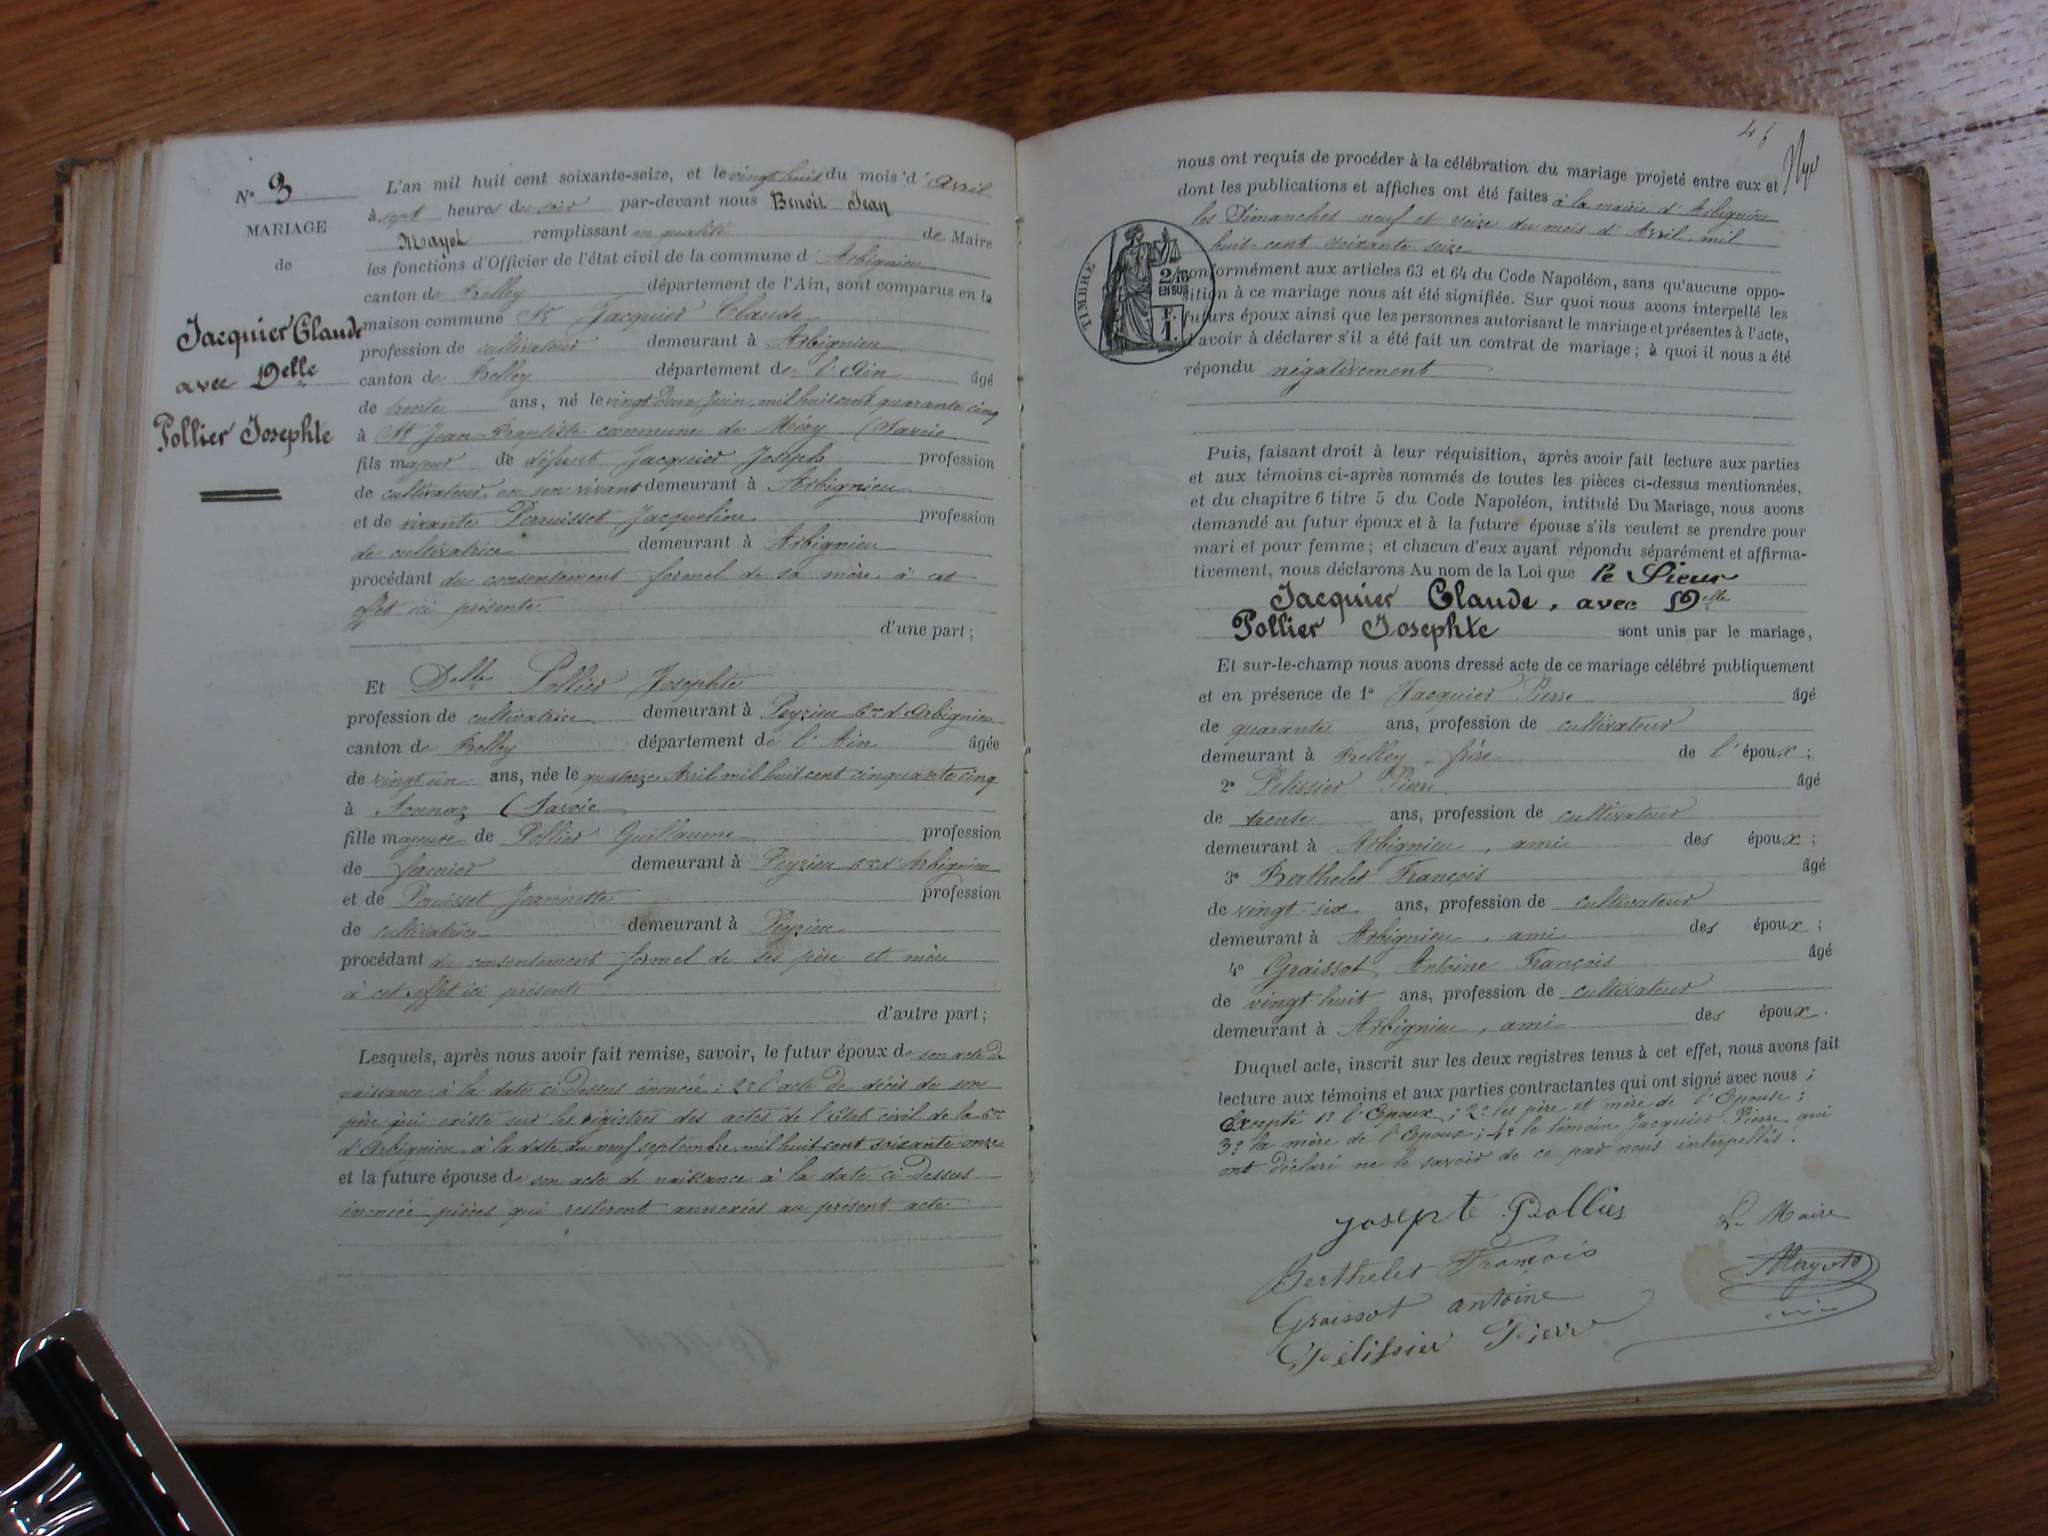 N° 3
MARIAGE
de
Jacquier Claude
avec Delle
Pollier Josephte
L'an mil huit cent soixante-seize, et le vingt huit du mois d'Avril
à sept heures du soir par-devant nous Benoit Jean
Mayot remplissant en qualité de Maire
les fonctions d'Officier de l'état civil de la commune d'Arbignieu
canton de Belley département de l'Ain, sont comparus en la
maison commune Sr Jacquier Claude
profession de cultivateur demeurant à Arbignieu
canton de Belley département de l'Ain âgé
de trente ans, né le vingt Deux Juin, mil huit cent quarante cinq
à St Jean-Baptiste commune de Méry (Savoie
fils majeur de défunt Jacquier Joseph profession
de cultivateur en son vivant demeurant à Arbignieu
et de vivante Perruisset Jacqueline profession
de cultivatrice demeurant à Arbignieu
procédant du consentement formel de sa mère, à cet
effet ici présente
d'une part;
Et Delle Pollier Josephte
profession de cultivatrice demeurant à Peyzieu Cne d'Arbignieu
canton de Belley département de l'Ain âgée
de vingt un ans, née le quatorze Avril mil huit cent cinquante cinq
à Sonnaz (Savoie
fille majeure de Pollier Guillaume profession
de fermier demeurant à Peyzieu Cne d'Arbignieu
et de Péruisset Jeannette profession
de cultivatrice demeurant à Peyzieu
procédant du consentement formel de ses père et mère
à cet effet ici présents
d'autre part;
Lesquels, après nous avoir fait remise, savoir, le futur époux de son acte de
naissance à la date ci-Dessus énoncée; 2° l'acte de décès de son
père qui existe sur les régistres des actes de l'état civil de la Cne
d'Arbignieu à la date du neuf septembre mil huit cent soixante-onze
et la future épouse de son acte de naissance à la date ci-Dessus
énoncée pièces qui resteront annexées au présent acte
nous ont requis de procéder à la célébration du mariage projeté entre eux et
dont les publications et affiches ont été faites à la mairie d'Arbignieu
les Dimanches neuf et seize du mois d'Avril, mil
huit-cent soixante seize
TIMBRE
2/10
EN SUS
F.
1.
conformément aux articles 63 et 64 du Code Napoléon, sans qu'aucune oppo-
sition à ce mariage nous ait été signifiée. Sur quoi nous avons interpellé les
futurs époux ainsi que les personnes autorisant le mariage et présentes à l'acte,
d'avoir à déclarer s'il a été fait un contrat de mariage; à quoi il nous a été
répondu négativement
Puis, faisant droit à leur réquisition, après avoir fait lecture aux parties
et aux témoins ci-après nommés de toutes les pièces ci-dessus mentionnées,
et du chapitre 6 titre 5 du Code Napoléon, intitulé Du Mariage, nous avons
demandé au futur époux et à la future épouse s'ils veulent se prendre pour
mari et pour femme; et chacun d'eux ayant répondu séparément et affirma-
tivement, nous déclarons Au nom de la Loi que le Sieur
Jacquier Claude, avec Delle
Pollier Josephte sont unis par le mariage,
Et sur-le-champ nous avons dressé acte de ce mariage célébré publiquement
et en présence de 1° Jacquier Pierre âgé
de quarante ans, profession de cultivateur
demeurant à Belley, frère de l'époux;
2° Pelissier Pierre âgé
de trente ans, profession de cultivateur
demeurant à Arbignieu, ami des époux;
3° Berthelet François âgé
de vingt-six ans, profession de cultivateur
demeurant à Arbignieu, ami des époux;
4° Graissot Antoine François âgé
de vingt huit ans, profession de cultivateur
demeurant à Arbignieu, ami des époux.
Duquel acte, inscrit sur les deux registres tenus à cet effet, nous avons fait
lecture aux témoins et aux parties contractantes qui ont signé avec nous;
Excepté 1° l'Epoux; 2° les père et mère de l'Epouse;
3° la mère de l'Epoux; 4° le témoin Jacquier Pierre qui
ont déclaré ne le savoir de ce par nous interpellés.
Josepte Pollier
Le Maire
Berthelet François
Mayot
Graissot antoine
Pélissier Pierre